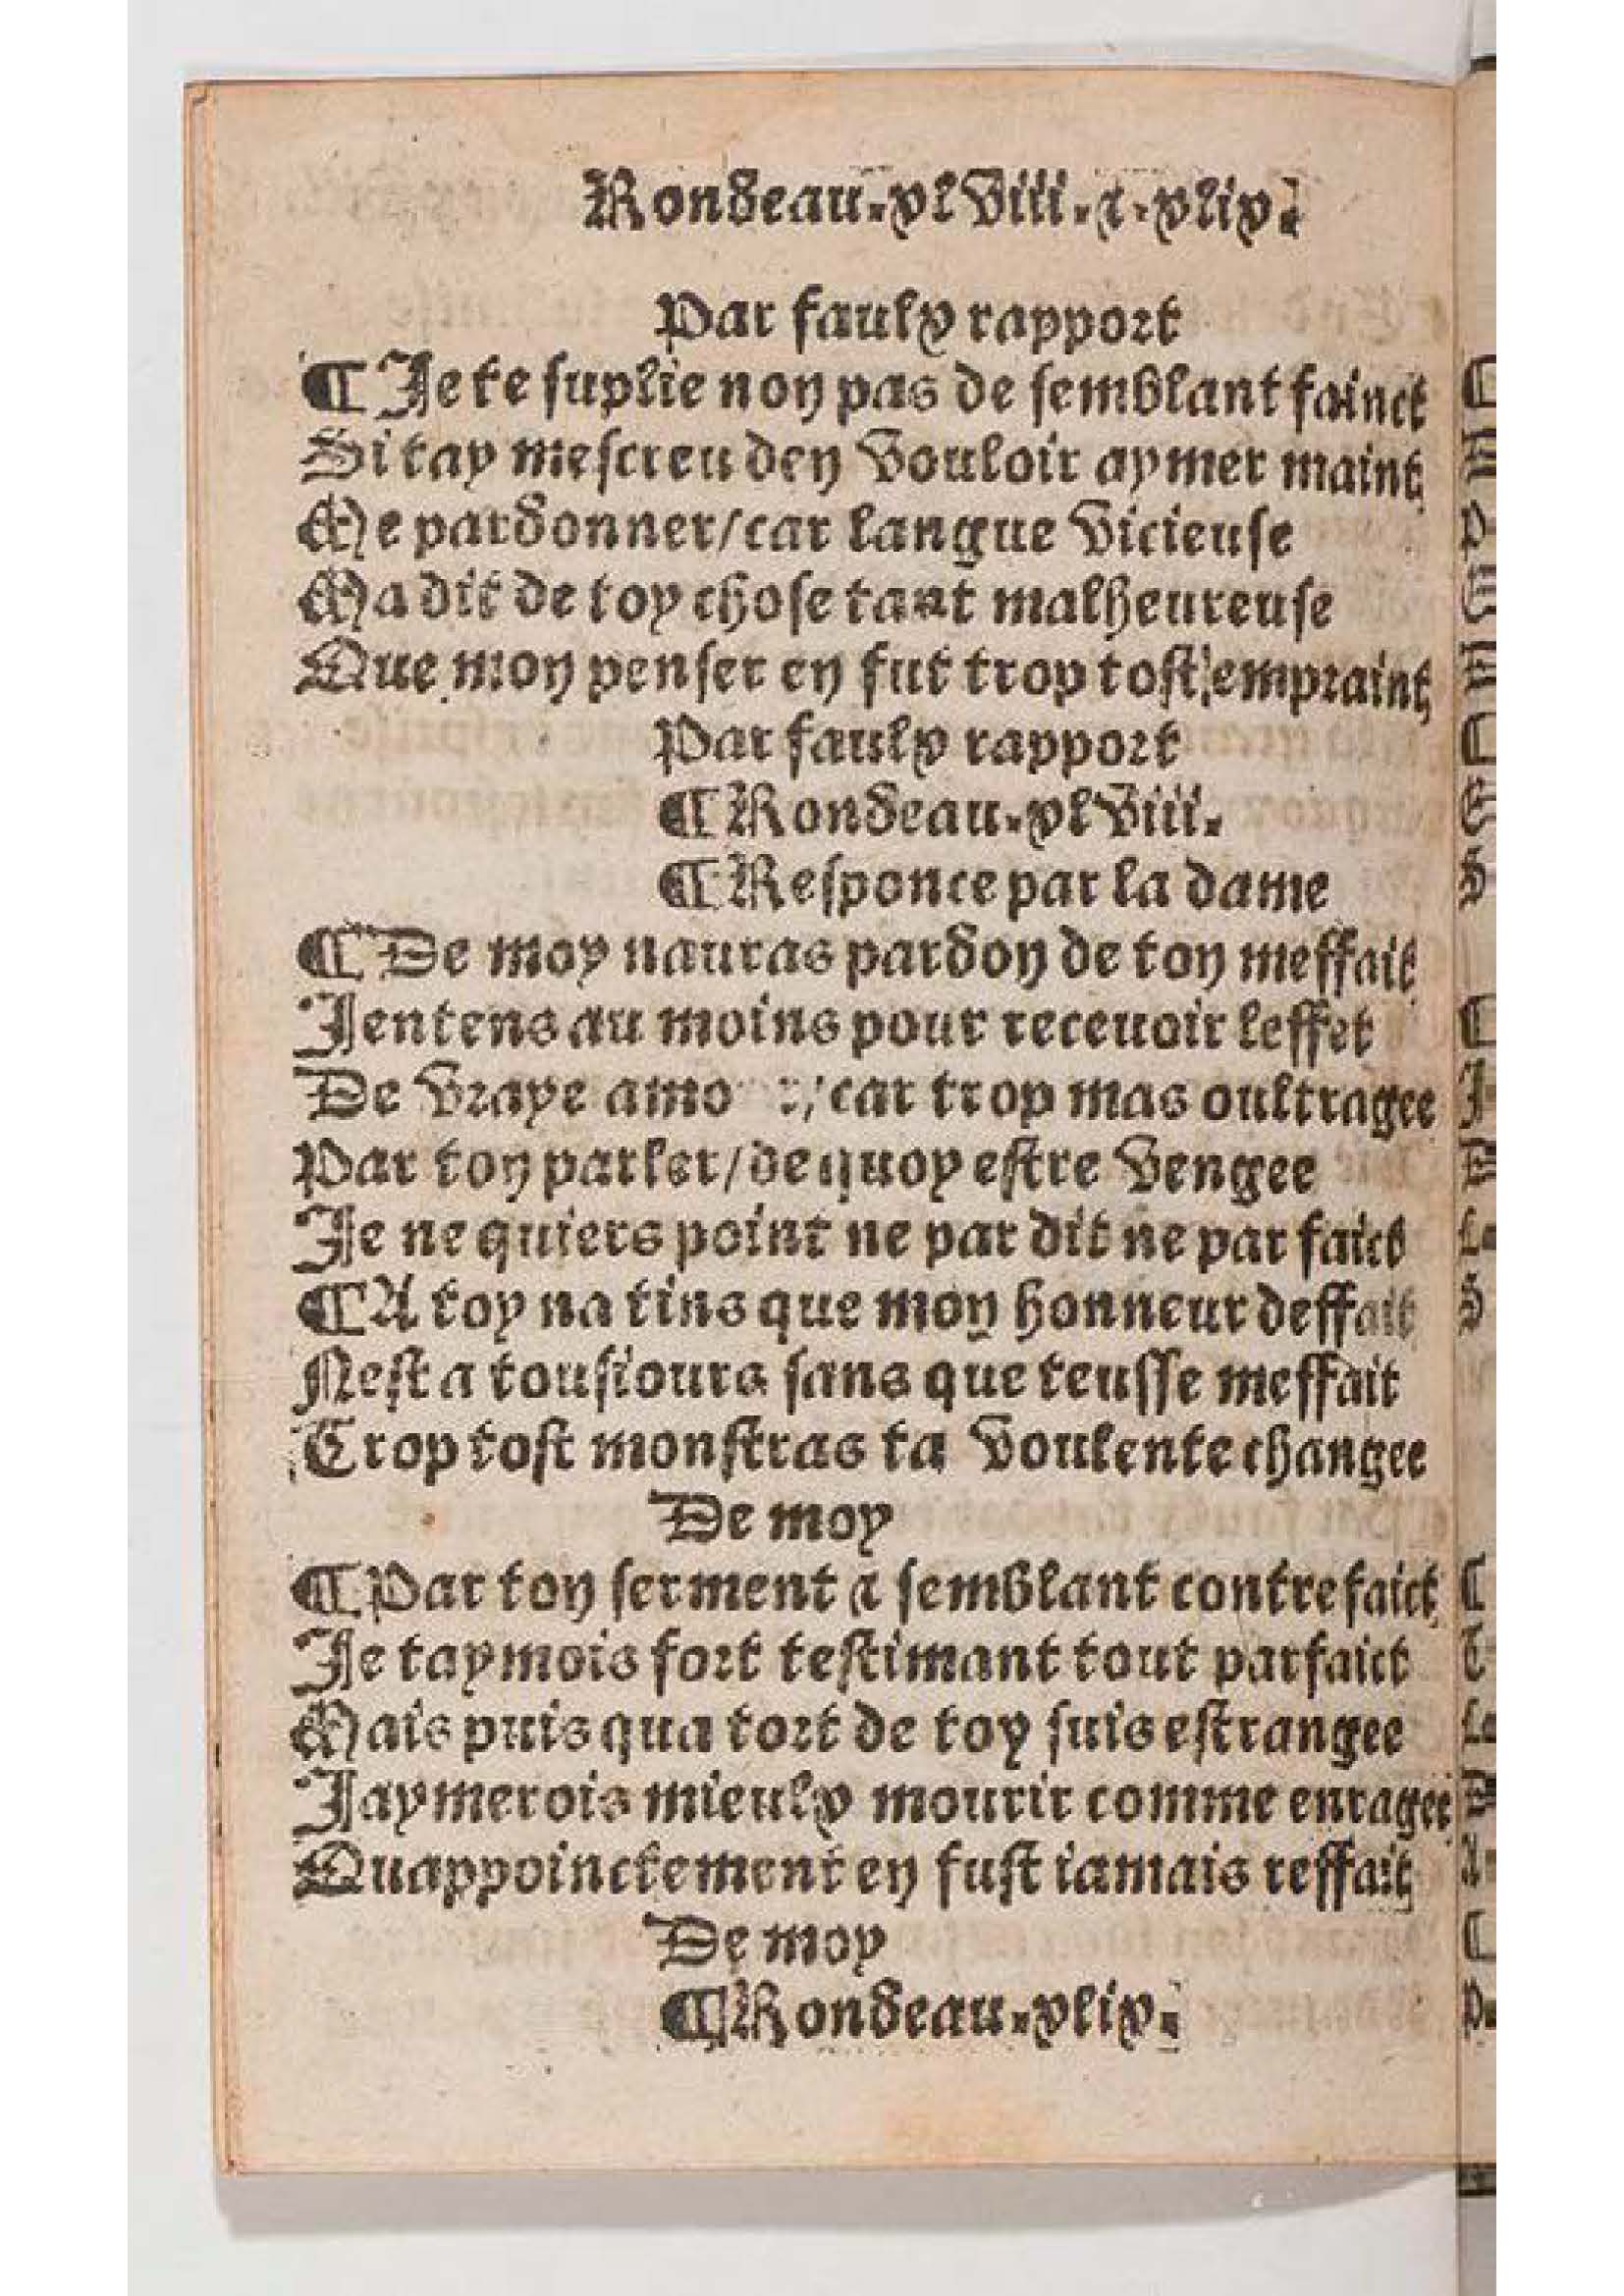 Rondeau.xlviii.⁊.xlix.
Par faulx rapport
¶ Je te suplie non pas de semblant fainct
Si tay mescreu den vouloir aymer maint
Me pardonner/car langue vicieuse
Ma dit de toy chose tant malheureuse
Que mon penser en fut trop tost empraint
Par faulx rapport
¶ Rondeau.xlviii.
¶ Responce par la dame
¶ De moy nauras pardon de ton meffait
Jentens au moins pour receuoir leffet
De vraye amo r/car trop mas oultragee
Par ton parler/de quoy estre vengee
Je ne quiers point ne par dit ne par faict
¶ A toy na tins que mon honneur deffait
Nest a tousiours sans que teusse meffait
Trop tost monstras ta voulente changee
De moy
¶ Par ton serment ⁊ semblant contrefaict
Je taymois fort testimant tout parfaict
Mais puis qua tort de toy suis estrangee
Jaymerois mieulx mourir comme enragee
Quappoinctement en fust iamais reffait
De moy
¶ Rondeau.xlix.